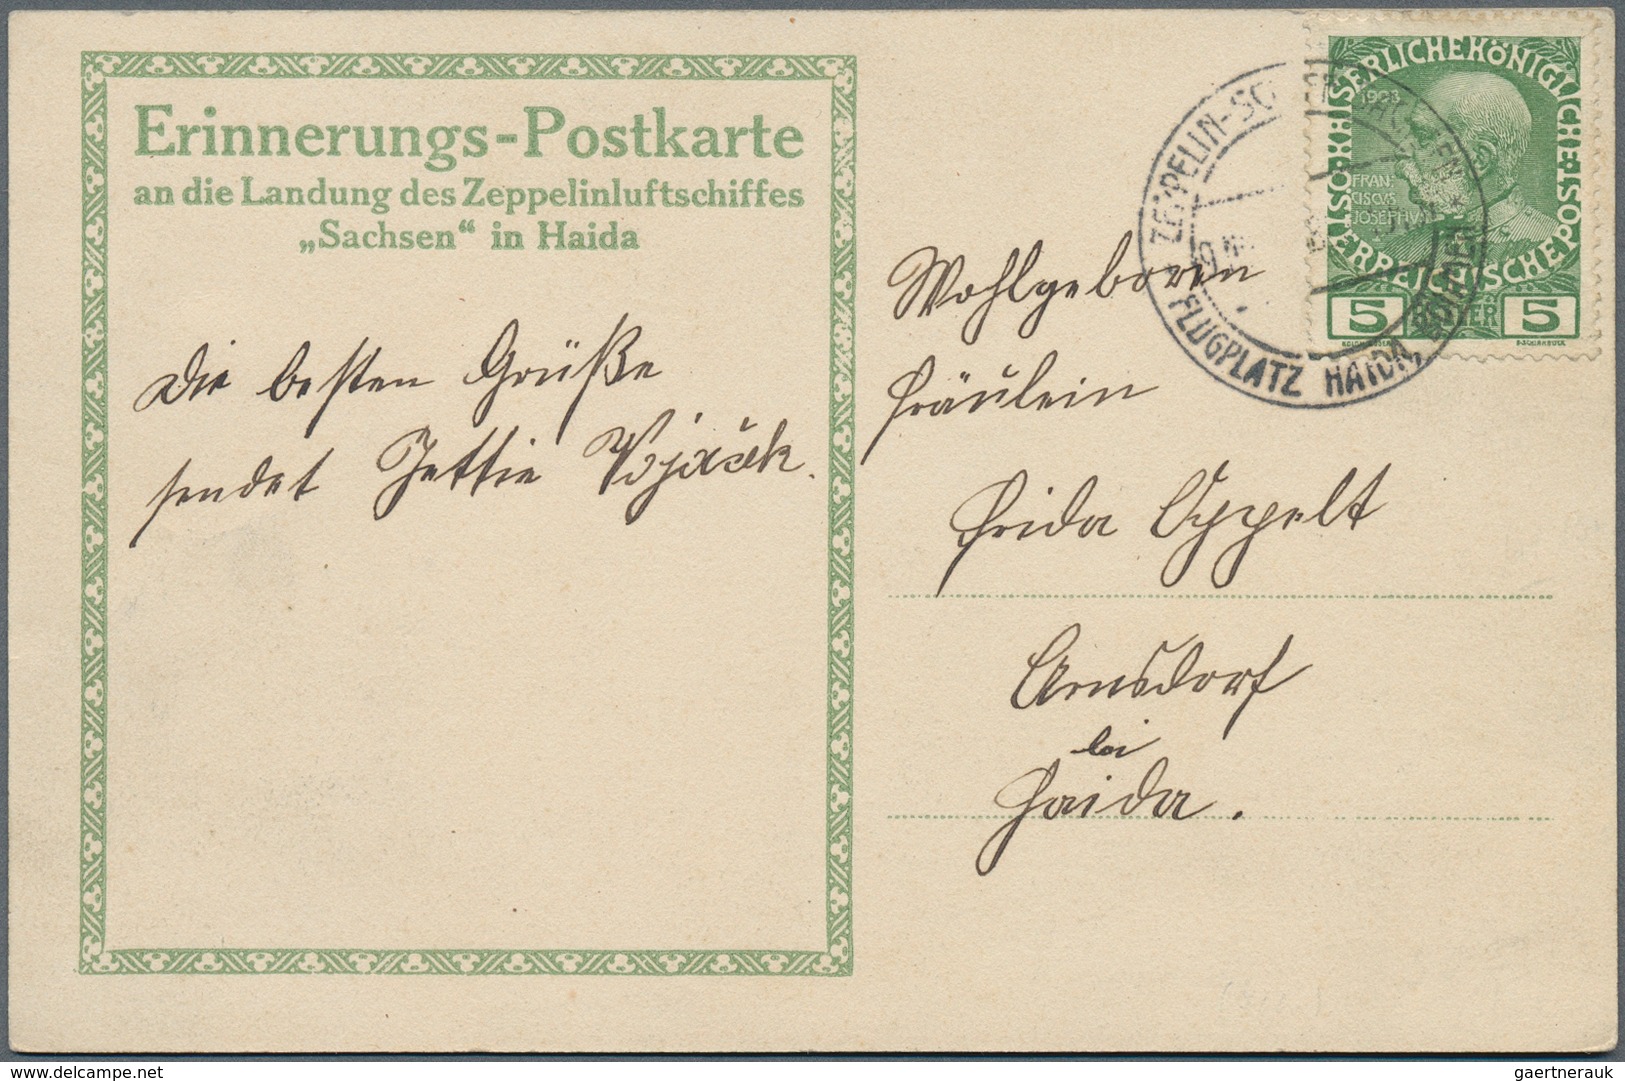 Erinnerungs-Postkarte
an die Landung des Zeppelinluftschiffes
„Sachsen“ in Haida
Die besten Grüße
sendet Jettie
Wohlgeboren
Fräulein
Frida Oppelt
Arnsdorf
bei
Haida.
KAISERLICHE KÖNIGLICHE
ÖSTERREICHISCHE POST
1908
FRAN-
CISCVS
JOSEPHVS I
5 HELLER 5
ZEPPELIN-
FLUGPLATZ HAIDA, BÖHMEN
www.delcampe.net
gaertnerauk